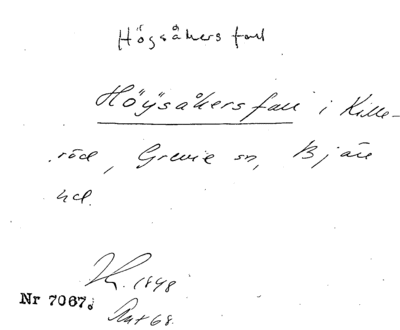 Högsåkers fall
Höÿsåkersfall i Kille-
röd, Grevie sn, Bjäre
hd.
1848
Nr 7067.